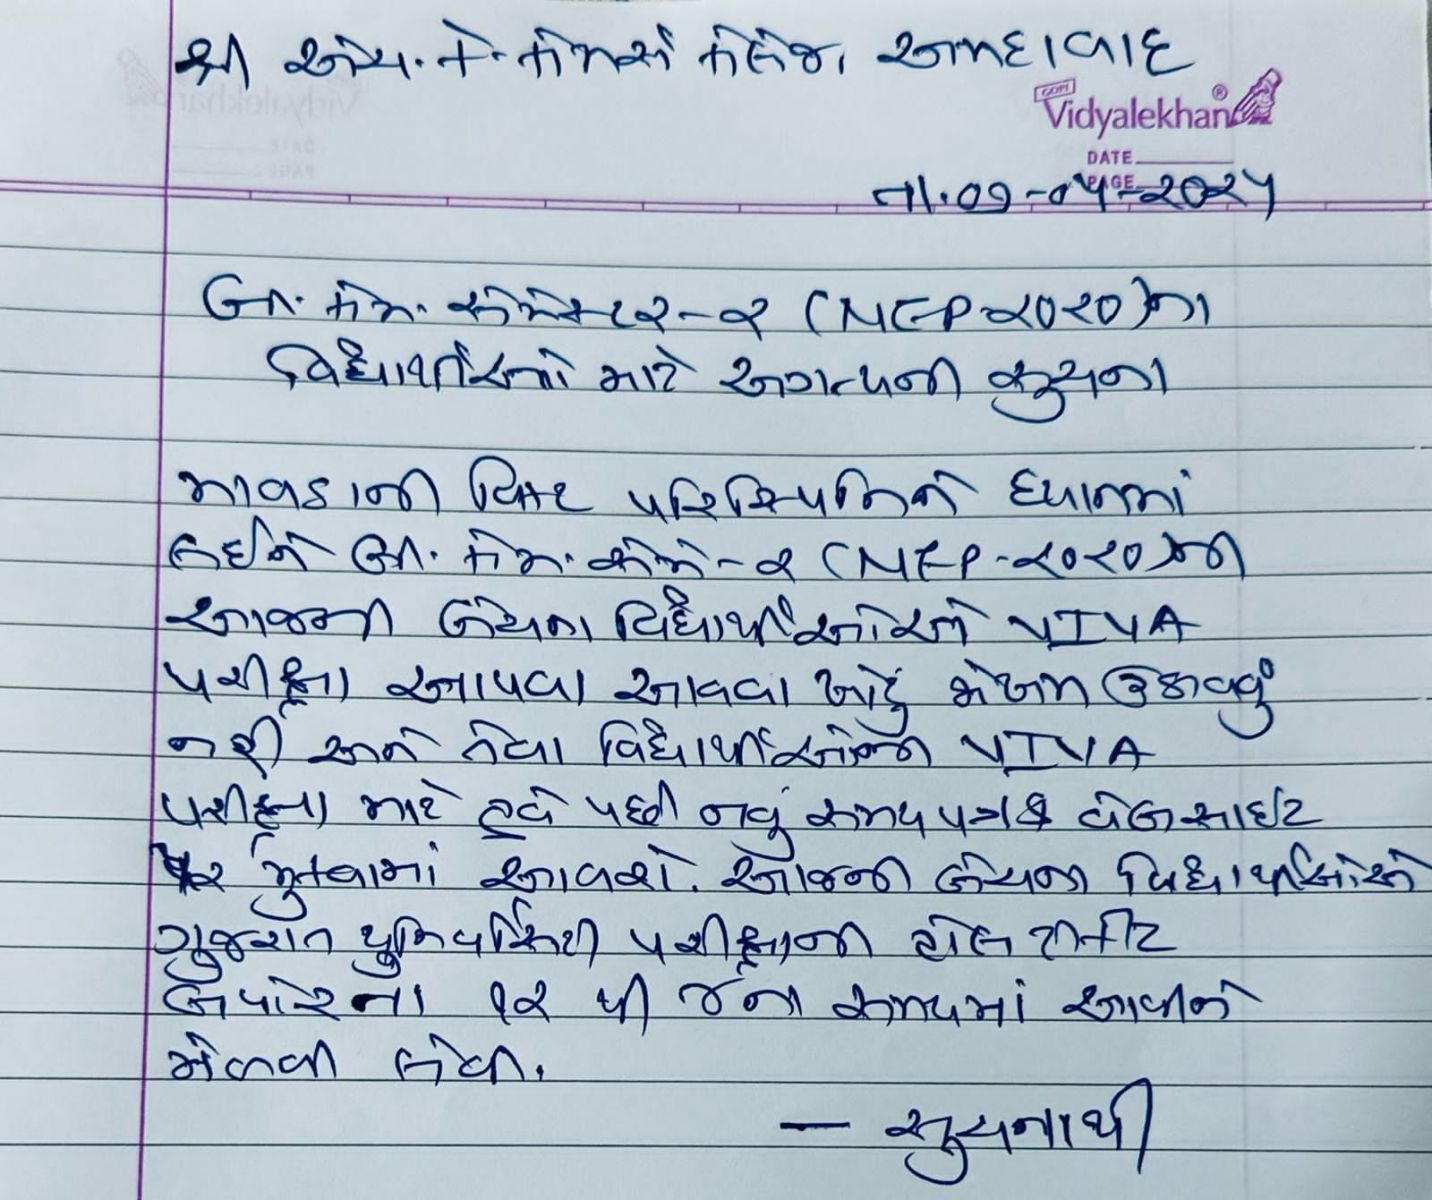 શ્રી એચ. કે. કોમર્સ કોલેજ, અમદાવાદ
GOPI
Vidyalekhan®
DATE
PAGE
તા.૦૭-૦૫-૨૦૨૫
બી. કોમ. સેમેસ્ટર-૨ (NEP-૨૦૨૦)ના
વિદ્યાર્થીઓ માટે અગત્યની સુચના
માવઠાની વિકટ પરિસ્થિતિને ધ્યાનમાં
લઈને બી. કોમ. સેમે-૨ (NEP-૨૦૨૦)ની
આજની બેચના વિદ્યાર્થીઓએ VIVA
પરીક્ષા આપવા આવવા ખોટું જોખમ ઉઠાવવું
નહીં અને તેવા વિદ્યાર્થીઓની VIVA
પરીક્ષા માટે હવે પછી નવું સમયપત્રક વેબસાઈટ
પર મુકવામાં આવશે. આજની બેચના વિદ્યાર્થીઓએ
ગુજરાત યુનિવર્સિટી પરીક્ષાની હોલ ટીકીટ
બપોરના ૧૨ થી ૪ના સમયમાં આવીને
મેળવી લેવી.
— સુચનાથી